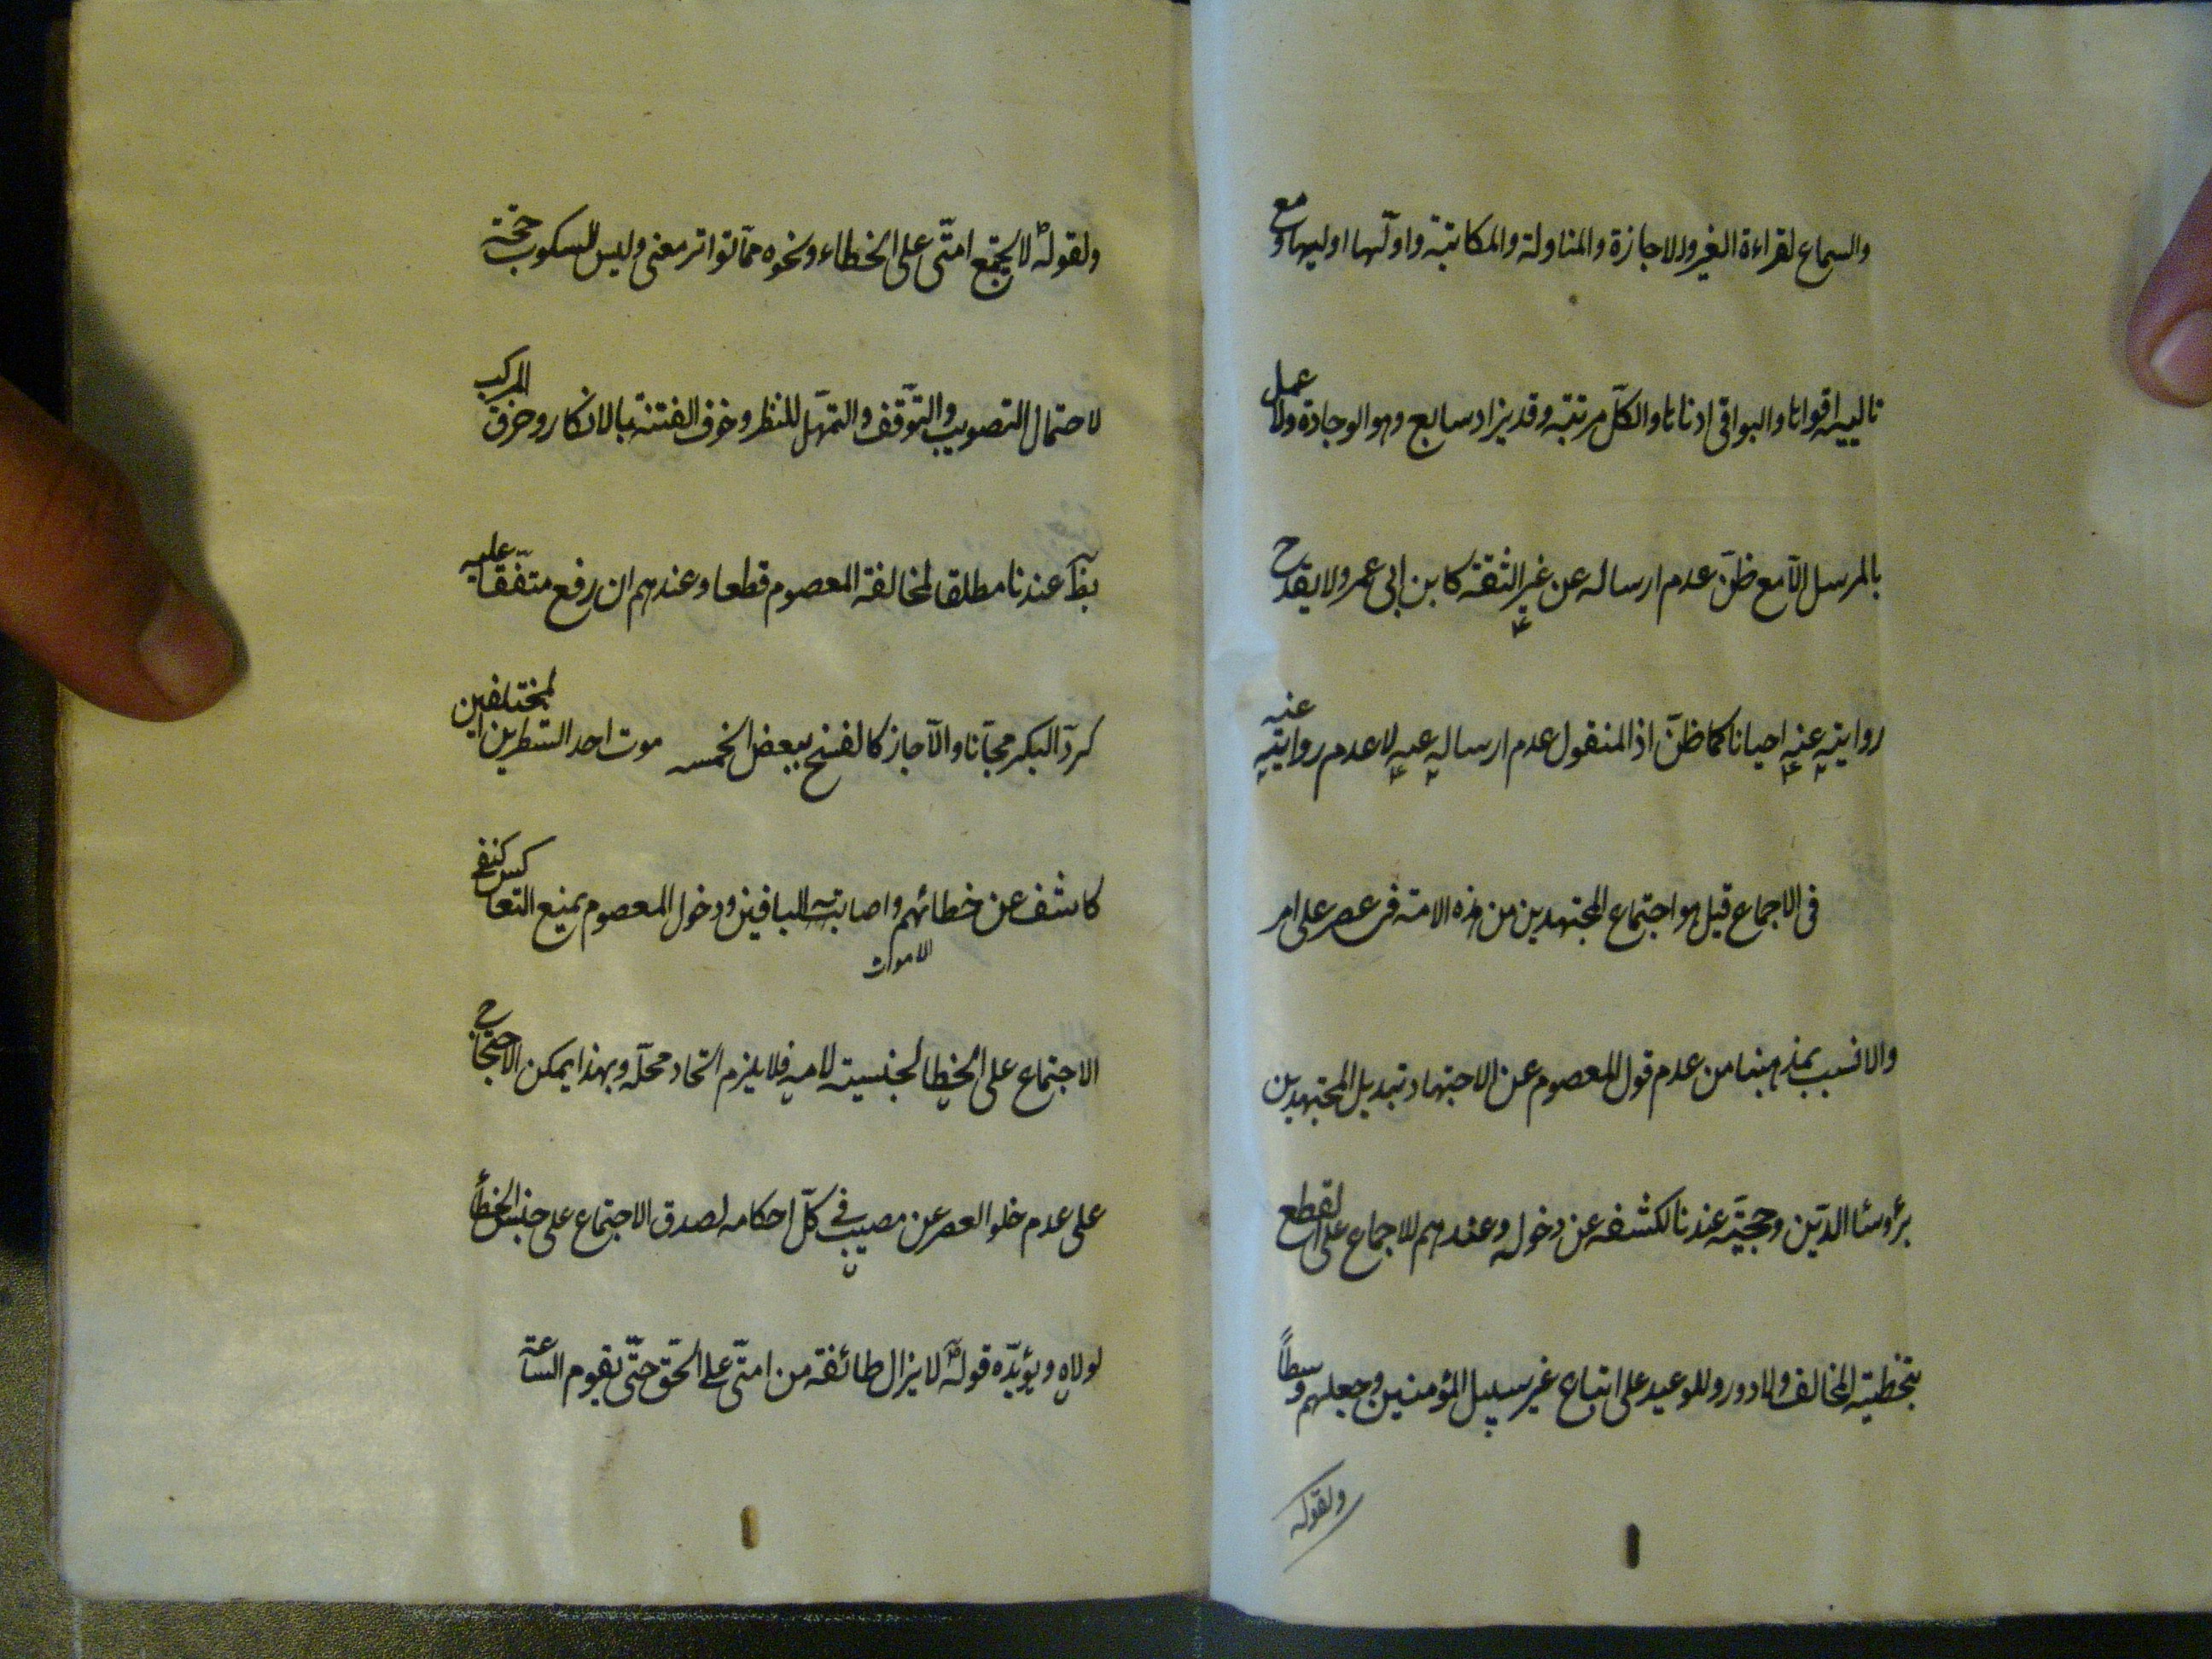 والسماع لقراءة الغير والاجازة والمناولة والمكاتبة واولها اوليها ومع
تالييه اقواها والبواقى ادناها والكل مرتبة وقد يزاد سابع وهو الوجادة ولا عمل
بالمرسل الا مع ظن عدم ارساله عن غير الثقة كابن ابى عمير ولا يقدح
روايته عنه احيانا كما ظن اذ المنقول عدم ارساله عنه لا عدم روايته عنه
فى الاجماع قيل هو اجتماع المجتهدين من هذه الامة فى عصر على امر
والانسب بمذهبنا من عدم قول المعصوم عن الاجتهاد تبديل المجتهدين
برؤساء الدين وحجيته عندنا لكشفه عن دخوله وعندهم للاجماع على القطع
بتخطية المخالف ولا دور وللوعيد على اتباع غير سبيل المؤمنين وجعلهم وسطاً
ولقوله
ولقوله لا يجتمع امتى على الخطاء ونحوه مما تواتر معنى وليس السكوتى حجة
لاحتمال التصويب والتوقف والتمهل للنظر وخوف الفتنة بالانكار وخرق المركب
بط عندنا مطلقا لمخالفة المعصوم قطعا وعندهم ان رفع متفقا عليه
كرد البكر مجانا والا جاز كالفسخ ببعض الخمسه موت احد الشطرين المختلفين
كاشف عن خطائهم واصابة الباقين ودخول المعصوم يمنع التعاكس كنفى
الاموات
الاجتماع على الخطا لجنسيته لامه فلا يلزم اتحاد محله وبهذا يمكن الاحتجاج
على عدم خلو العصر عن مصيب فى كل احكامه لصدق الاجتماع على جنس الخطأ
لولاه ويؤيده قوله لا يزال طائفة من امتى على الحق حتى يقوم الساعة